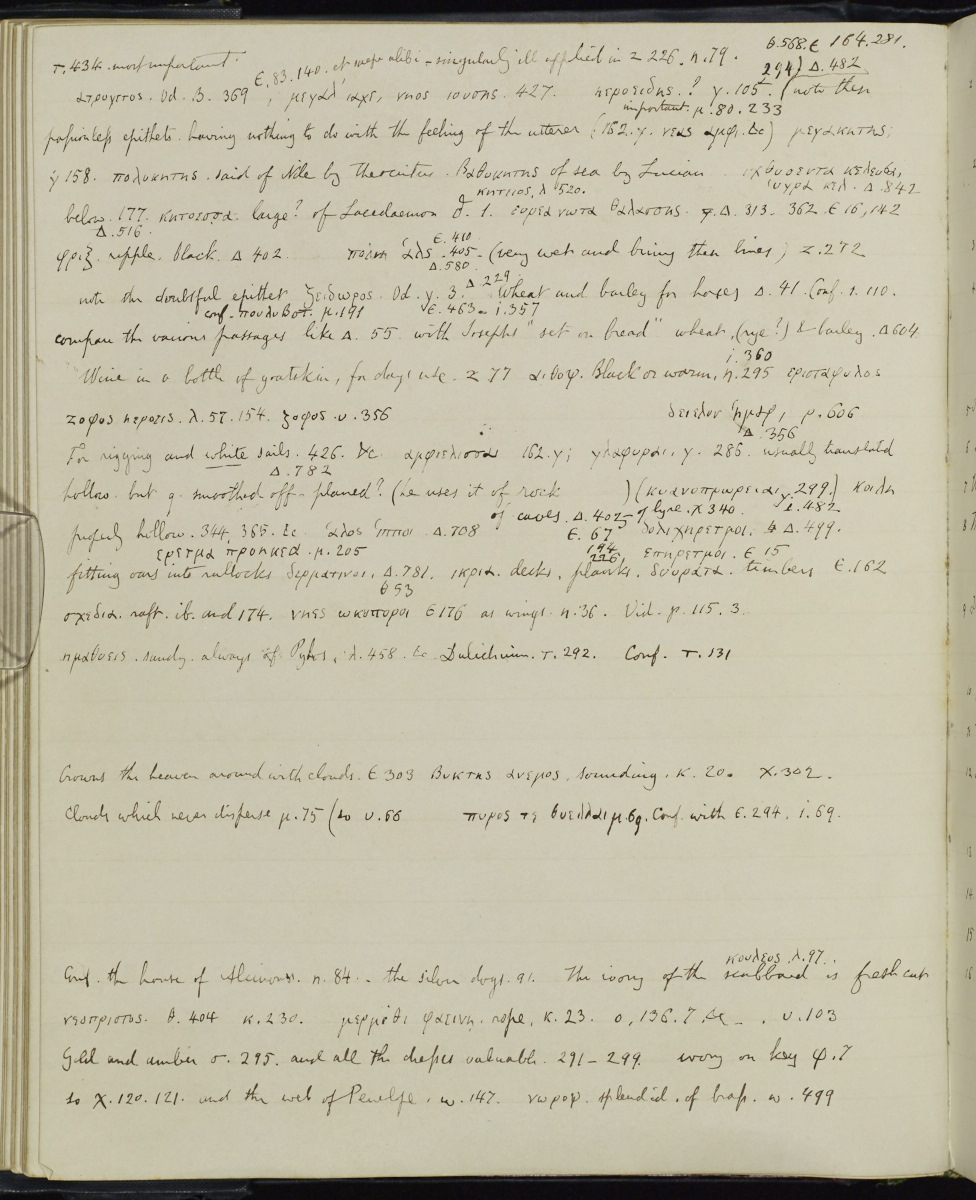 Ε.568.Ε 164.281.
τ.434. most important
Ε.83.140. et saepe alibi - singularly ill applied in Ζ 226. η.79.
294) Δ.482
ατρυγετος. Od. Β. 369 ; μεγαλ' ιαχε, νηος ιουσης. 427. ηεροειδης.? γ.105. (note these
important. μ.80.233
passionless epithets. having nothing to do with the feeling of the utterer (162.γ. νεας αμφι. &c) μεγακητης;
γ 158. πολυκητης. said of Nile by Theocritus. Βαθυκητης of sea by Lucian ιχθυοεντα κελευθα,
υγρα κελ. Δ.842
κητειος. λ 520.
below. 177. κητοεσσα. large? of Lacedaemon δ. 1. ευρεα νωτα θαλασσης. Δ. 313. 362. Ε 16,142
Δ.516.
Ε.410
φριξ. ripple. black. Δ 402 πολιη αλς .405. (very wet and briny these lines) Ζ.272
Δ.580
Δ.229.
note the doubtful epithet ζειδωρος. Od. γ. 3. Wheat and barley for horses Δ.41. Conf. 1. 110.
conf. πουλυβοτ. μ.191 Ε.463. ι.357
compare the various passages like Δ. 55 with Josephs "set on bread" wheat, (rye?) & barley. Δ 604
ι.360
Wine in a bottle of goatskin, for days use. Ζ 77 αιθοψ. Black or warm, η.295 ερισταφυλος
ζοφος ηεροεις. λ.57.154. ζοφος. υ.356 δειελον ημαρ, ρ.606
Δ.356
For rigging and white sails. 426. &c αμφιελισσαι 162.γ; γλαφυραι, γ. 286. usually translated
Δ.782
hollow. but q. smoothed off - planed? (he uses it of rock ) (κυανοπρωρειαι γ.299.) κοιλη
of caves. Δ.402 of lyre. χ 340. ι.482
properly hollow. 344, 365. &c αλος ιπποι Δ.708 Ε.67 δολιχηρετμοι. Δ.499.
ερετμα προηκεα. μ.205 194 226 επηρετμοι. Ε 15
fitting oars into rullocks δερματινοι, Δ.781. ικρια. decks, planks. δουρατα. timbers Ε.162
θ 53
σχεδια. raft. ib. and 174. νηες ωκυποροι Ε 176 as wings. η.36. Vid. p. 115. 3.
ημαθοεις. sandy. always of Pylos, λ.458. &c Dulichium. τ.292. Conf. τ.131
Crowns the heaven around with clouds. Ε 303 Βυκτης ανεμος. sounding. κ. 20. χ.302.
Clouds which never disperse μ.75 (so υ.66 πυρος τε θυελλαι μ.69. Conf. with Ε.294. ι.69.
κουλεος λ.97.
Conf. the house of Alcinous. η. 84. - the silver dogs. 91. The ivory of the scabbard is fresh cut
νεοπριστος. θ. 404 κ.230. μερμιθι φαεινη. rope, κ. 23. ο, 136.7 &c - . υ.103
Gold and amber σ. 295. and all the dresses valuable. 291 - 299. ivory on key φ.7
so χ.120.121. and the web of Penelope. ω.147. νωροψ. splendid. of brass. ω.499